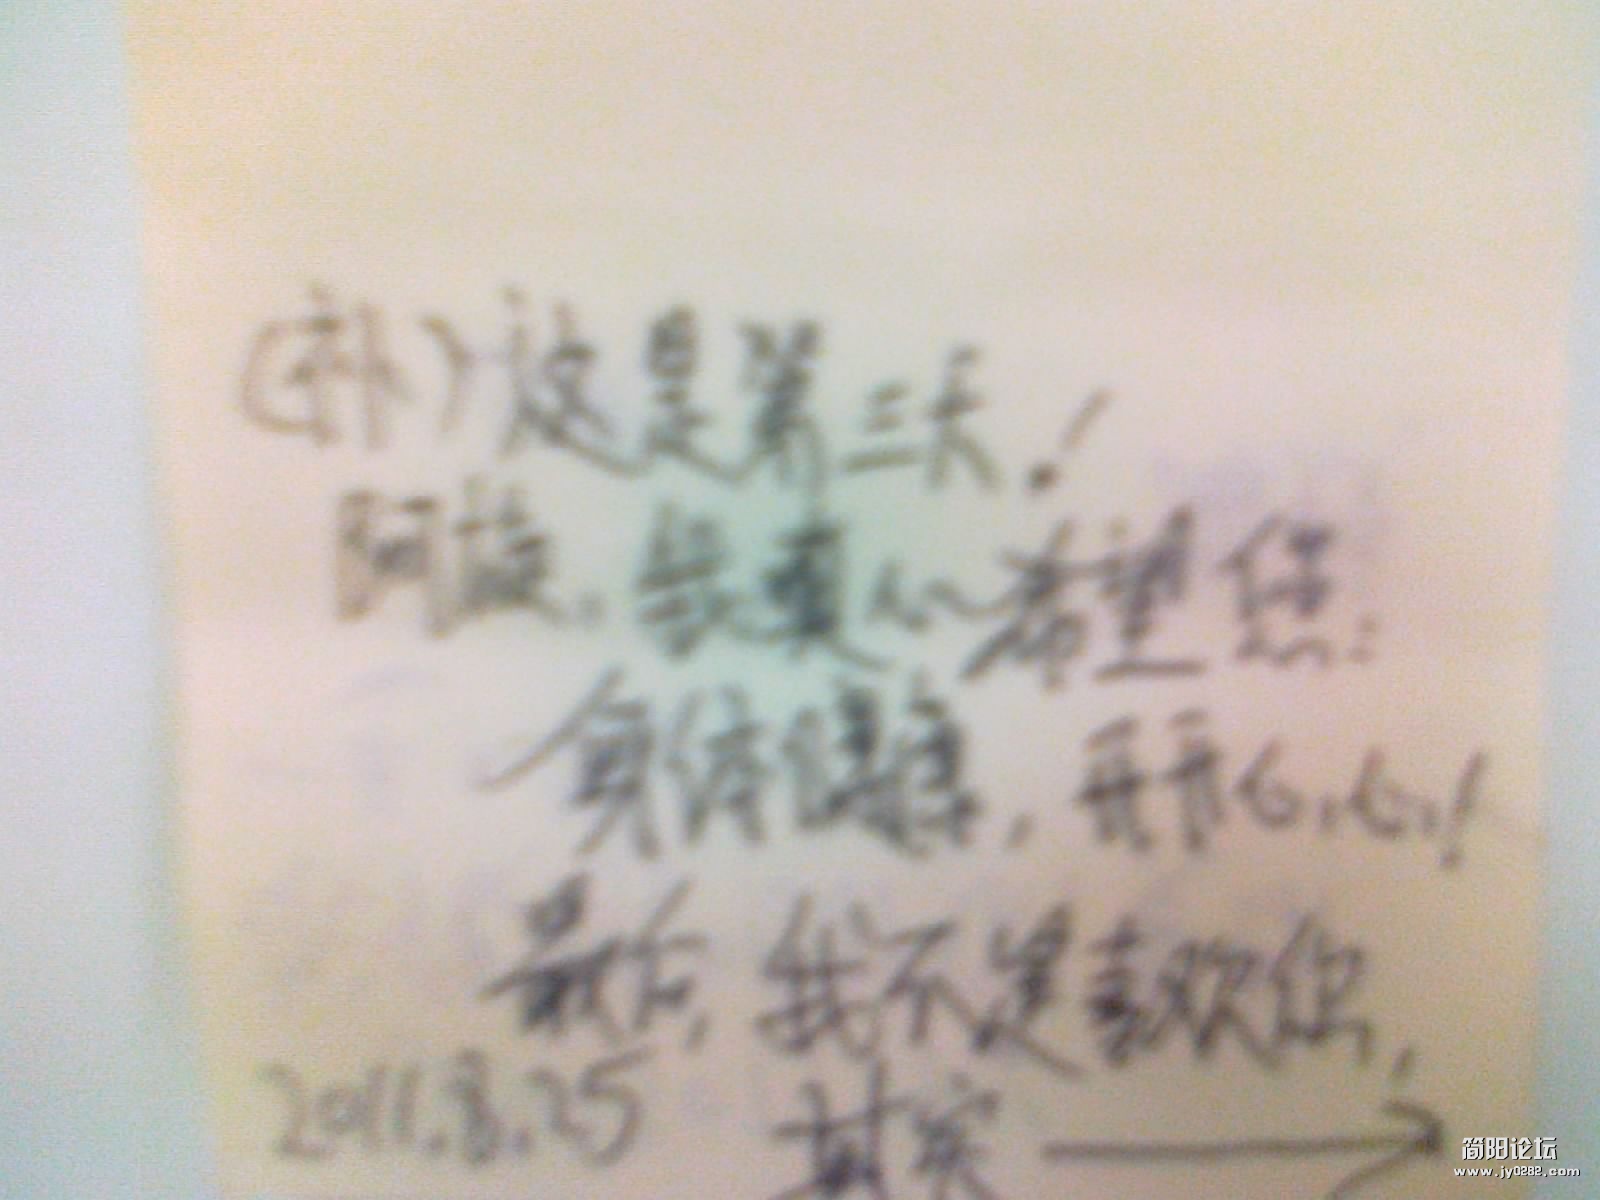 (补)这是第三天!
阿婆,我衷心希望您:
身体健康,开开心心!
最后,我不是喜欢您,
2011.8.25
其实→
简阳论坛
www.jy0282.com